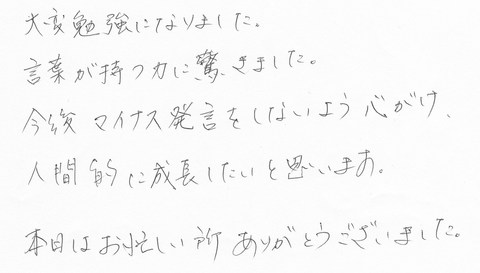 大変勉強になりました。
言葉が持つ力に驚きました。
今後マイナス発言をしないよう心がけ、
人間的に成長したいと思います。
本日はお忙しい所ありがとうございました。